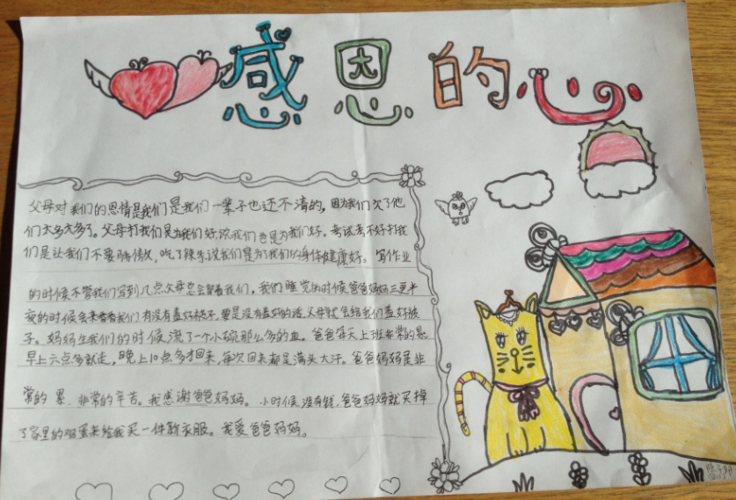 感恩的心
父母对我们的恩情是我们是我们一辈子也还不清的，因为我们欠了他
们太多太多了。父母打我们是为我们好，说我们也是为我们好。考试考不好打我
们是让我们不要骄傲，吃了辣条说我们是为了我们的身体健康好。写作业
的时候不管我们写到几点父母总会陪着我们，我们睡觉的时候爸爸妈妈三更半
夜的时候会来看看我们有没有盖好被子，要是没有盖好的话，父母就会给我们盖好被
子。妈妈生我们的时候流了一个小碗那么多的血。爸爸每天上班非常的累
早上六点多就走，晚上10点多才回来，每次回来都是满头大汗。爸爸妈妈是非
常的累，非常的辛苦。我感谢爸爸妈妈。小时候没有钱，爸爸妈妈就买掉
了家里的鸡蛋来给我买一件新衣服。我爱爸爸妈妈。